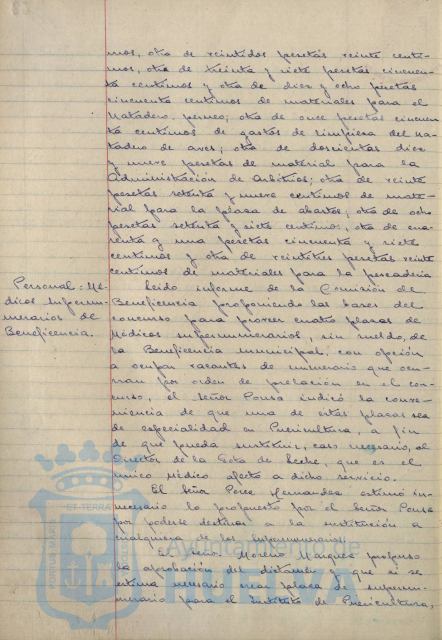 mos, otra de veintidos pesetas veinte centi-
mos, otra de treinta y siete pesetas cincuen-
ta centimos y otra de diez y ocho pesetas
cincuenta centimos de materiales para el
Matadero perneo; otra de once pesetas cincuen
ta centimos de gastos de limpieza del ma-
tadero de aves; otra de doscientas diez
y nueve pesetas de material para la
Administración de Arbitrios; otra de veinte
pesetas setenta y nueve centimos de mate-
rial para la plaza de abastos; otra de ocho
pesetas setenta y siete centimos, otra de cua-
renta y una pesetas cincuenta y siete
centimos y otra de veintitres pesetas veinte
centimos de materiales para la pescaderia
Personal = Mé-
dicos supernu-
merarios de
Beneficencia.
Leido informe de la Comisión de
Beneficencia proponiendo las bases del
concurso para proveer cuatro plazas de
Médicos supernumerarios, sin sueldo, de
la Beneficencia municipal, con opción
a ocupar vacantes de numerario que ocu-
rran por orden de prelación en el con-
curso, el señor Pousa indicó la conve-
niencia de que una de estas plazas sea
de especialidad en Puericultura, a fin
de que pueda sustituir, caso necesario, al
Director de la Gota de leche, que es el
unico Médico afecto a dicho servicio.
El señor Ponce Hernandez estimó in-
necesario lo propuesto por el señor Pousa
por poderse destinar a la institución a
cualquiera de los supernumerarios.
El señor Moreno Marquez propuso
la aprobación del dictamen y que si se
estima necesario crear plaza de supernu-
merario para el Instituto de Puericultura,
PORTUS MARIS
ET TERRA
Ayuntamiento de
HUELVA